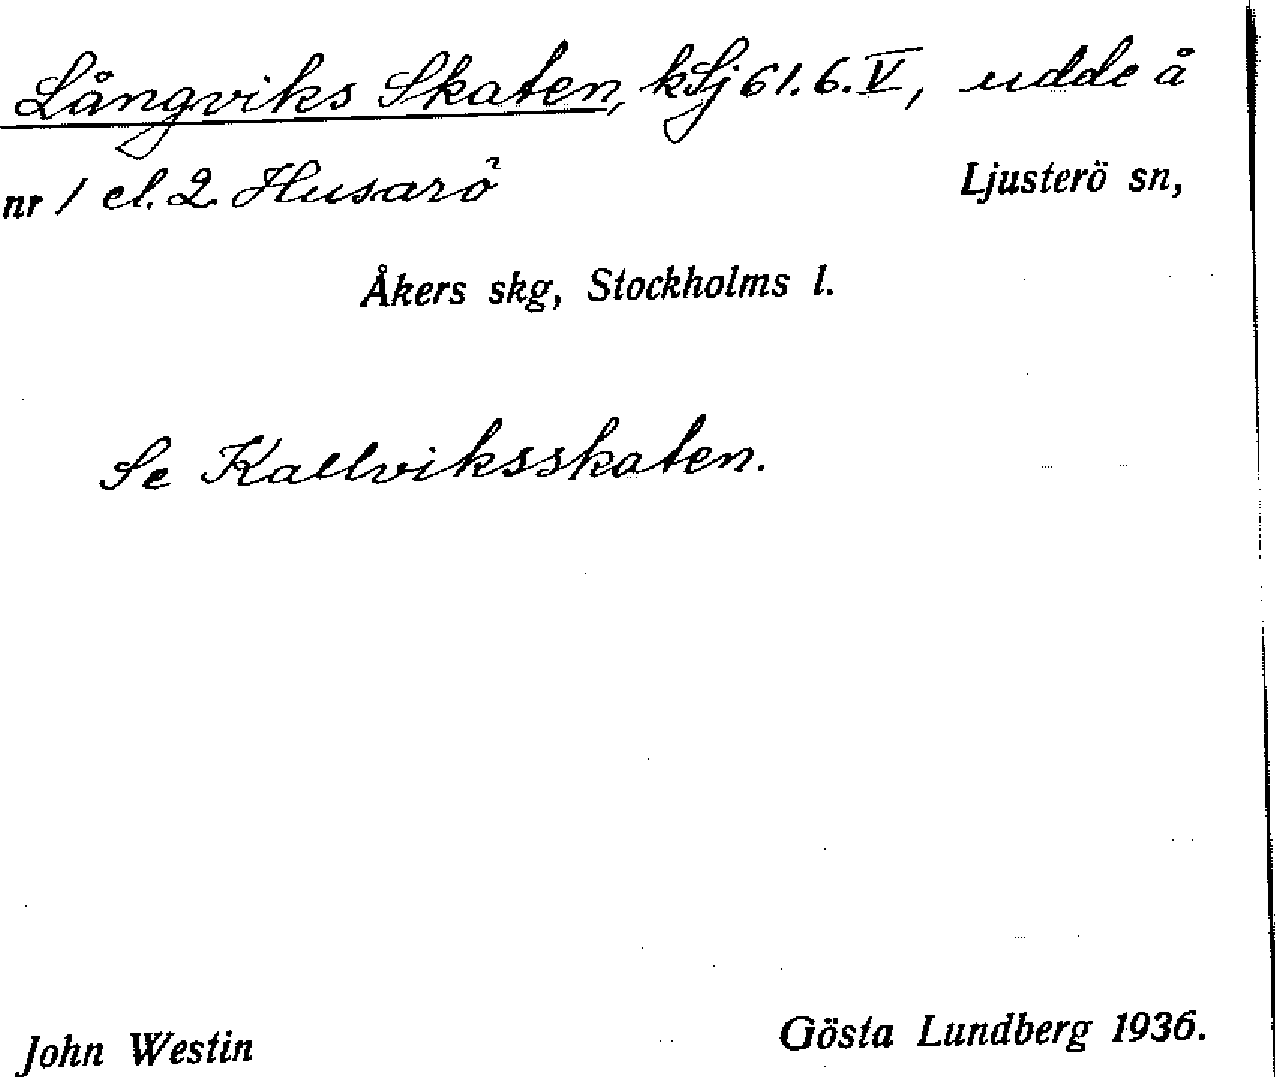 Långviks Skaten, kLj 61.6.V, udde å
nr 1 el. 2 Husarö Ljusterö sn,
Åkers skg, Stockholms l.
Se Kallviksskaten.
John Westin Gösta Lundberg 1936.